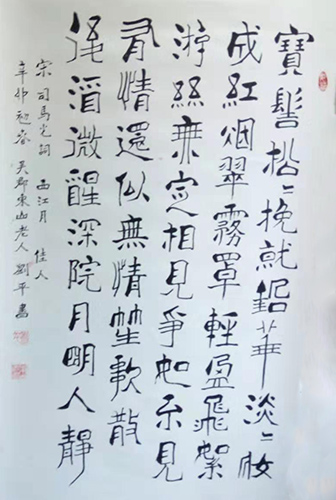 寶髻松〻挽就鉛華淡〻妝
成紅烟翠霧罩輕盈飛絮
游絲無定相見爭如不見
有情還似無情笙歌散
後酒微醒深院月明人靜
宋司馬光詞 西江月 佳人
辛卯初春 吳郡東山老人劉平書